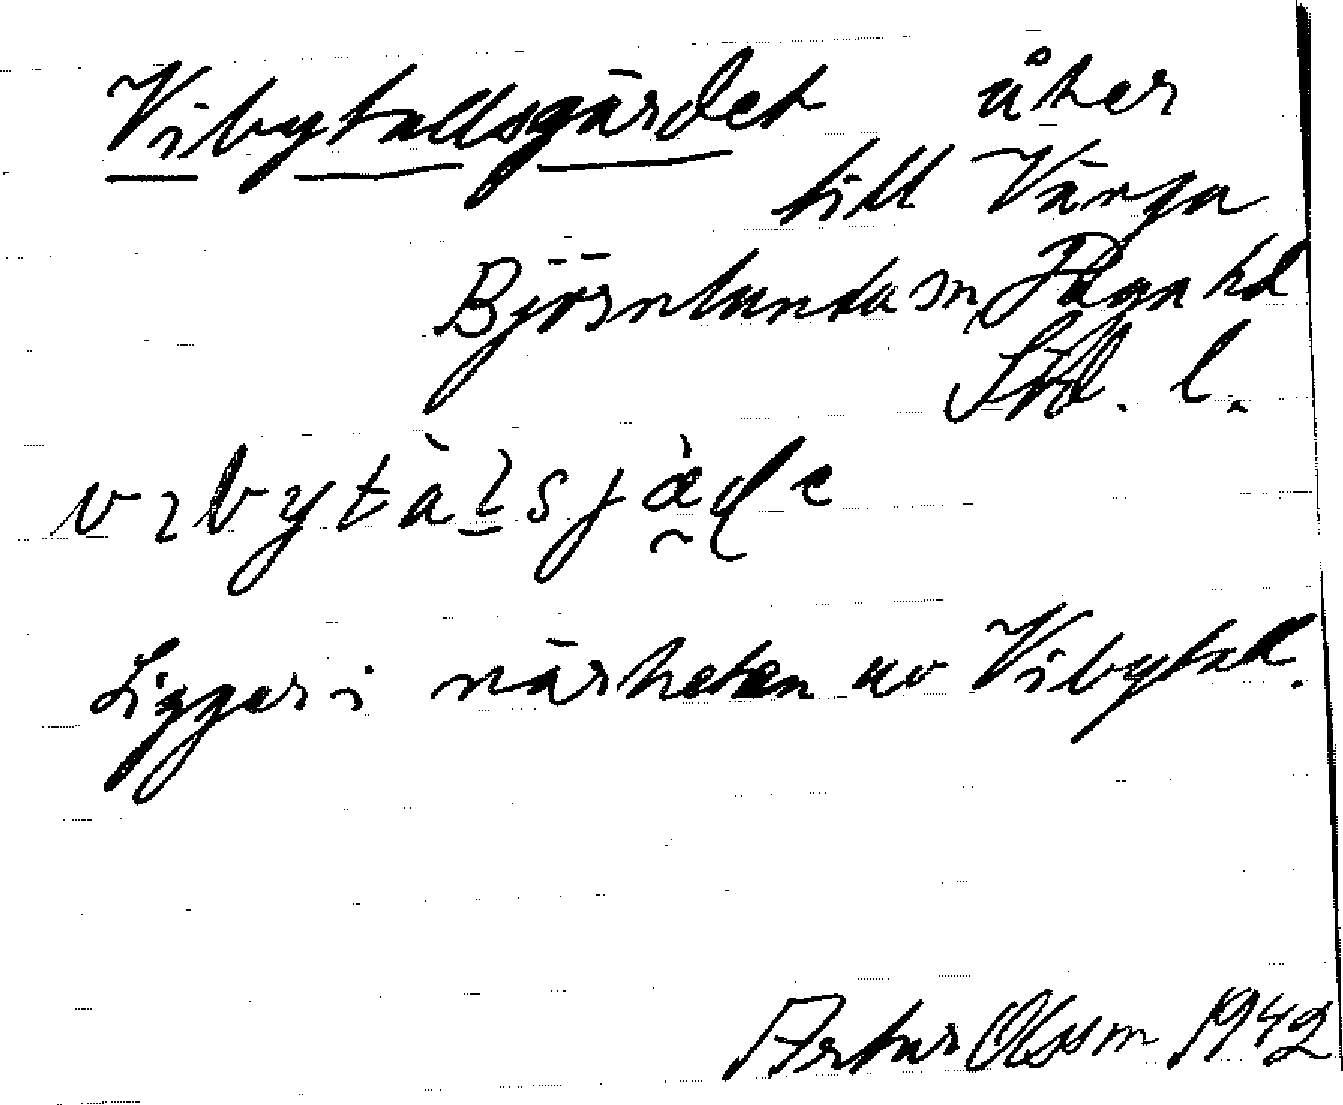 Vibytallsgärdet åker
till Vänga
Björnlunda sn, Daga hd
Srd. l.
vıbytàlsjæ̀de
Ligger i närheten av Vibytall.
Artur Olsson 1942